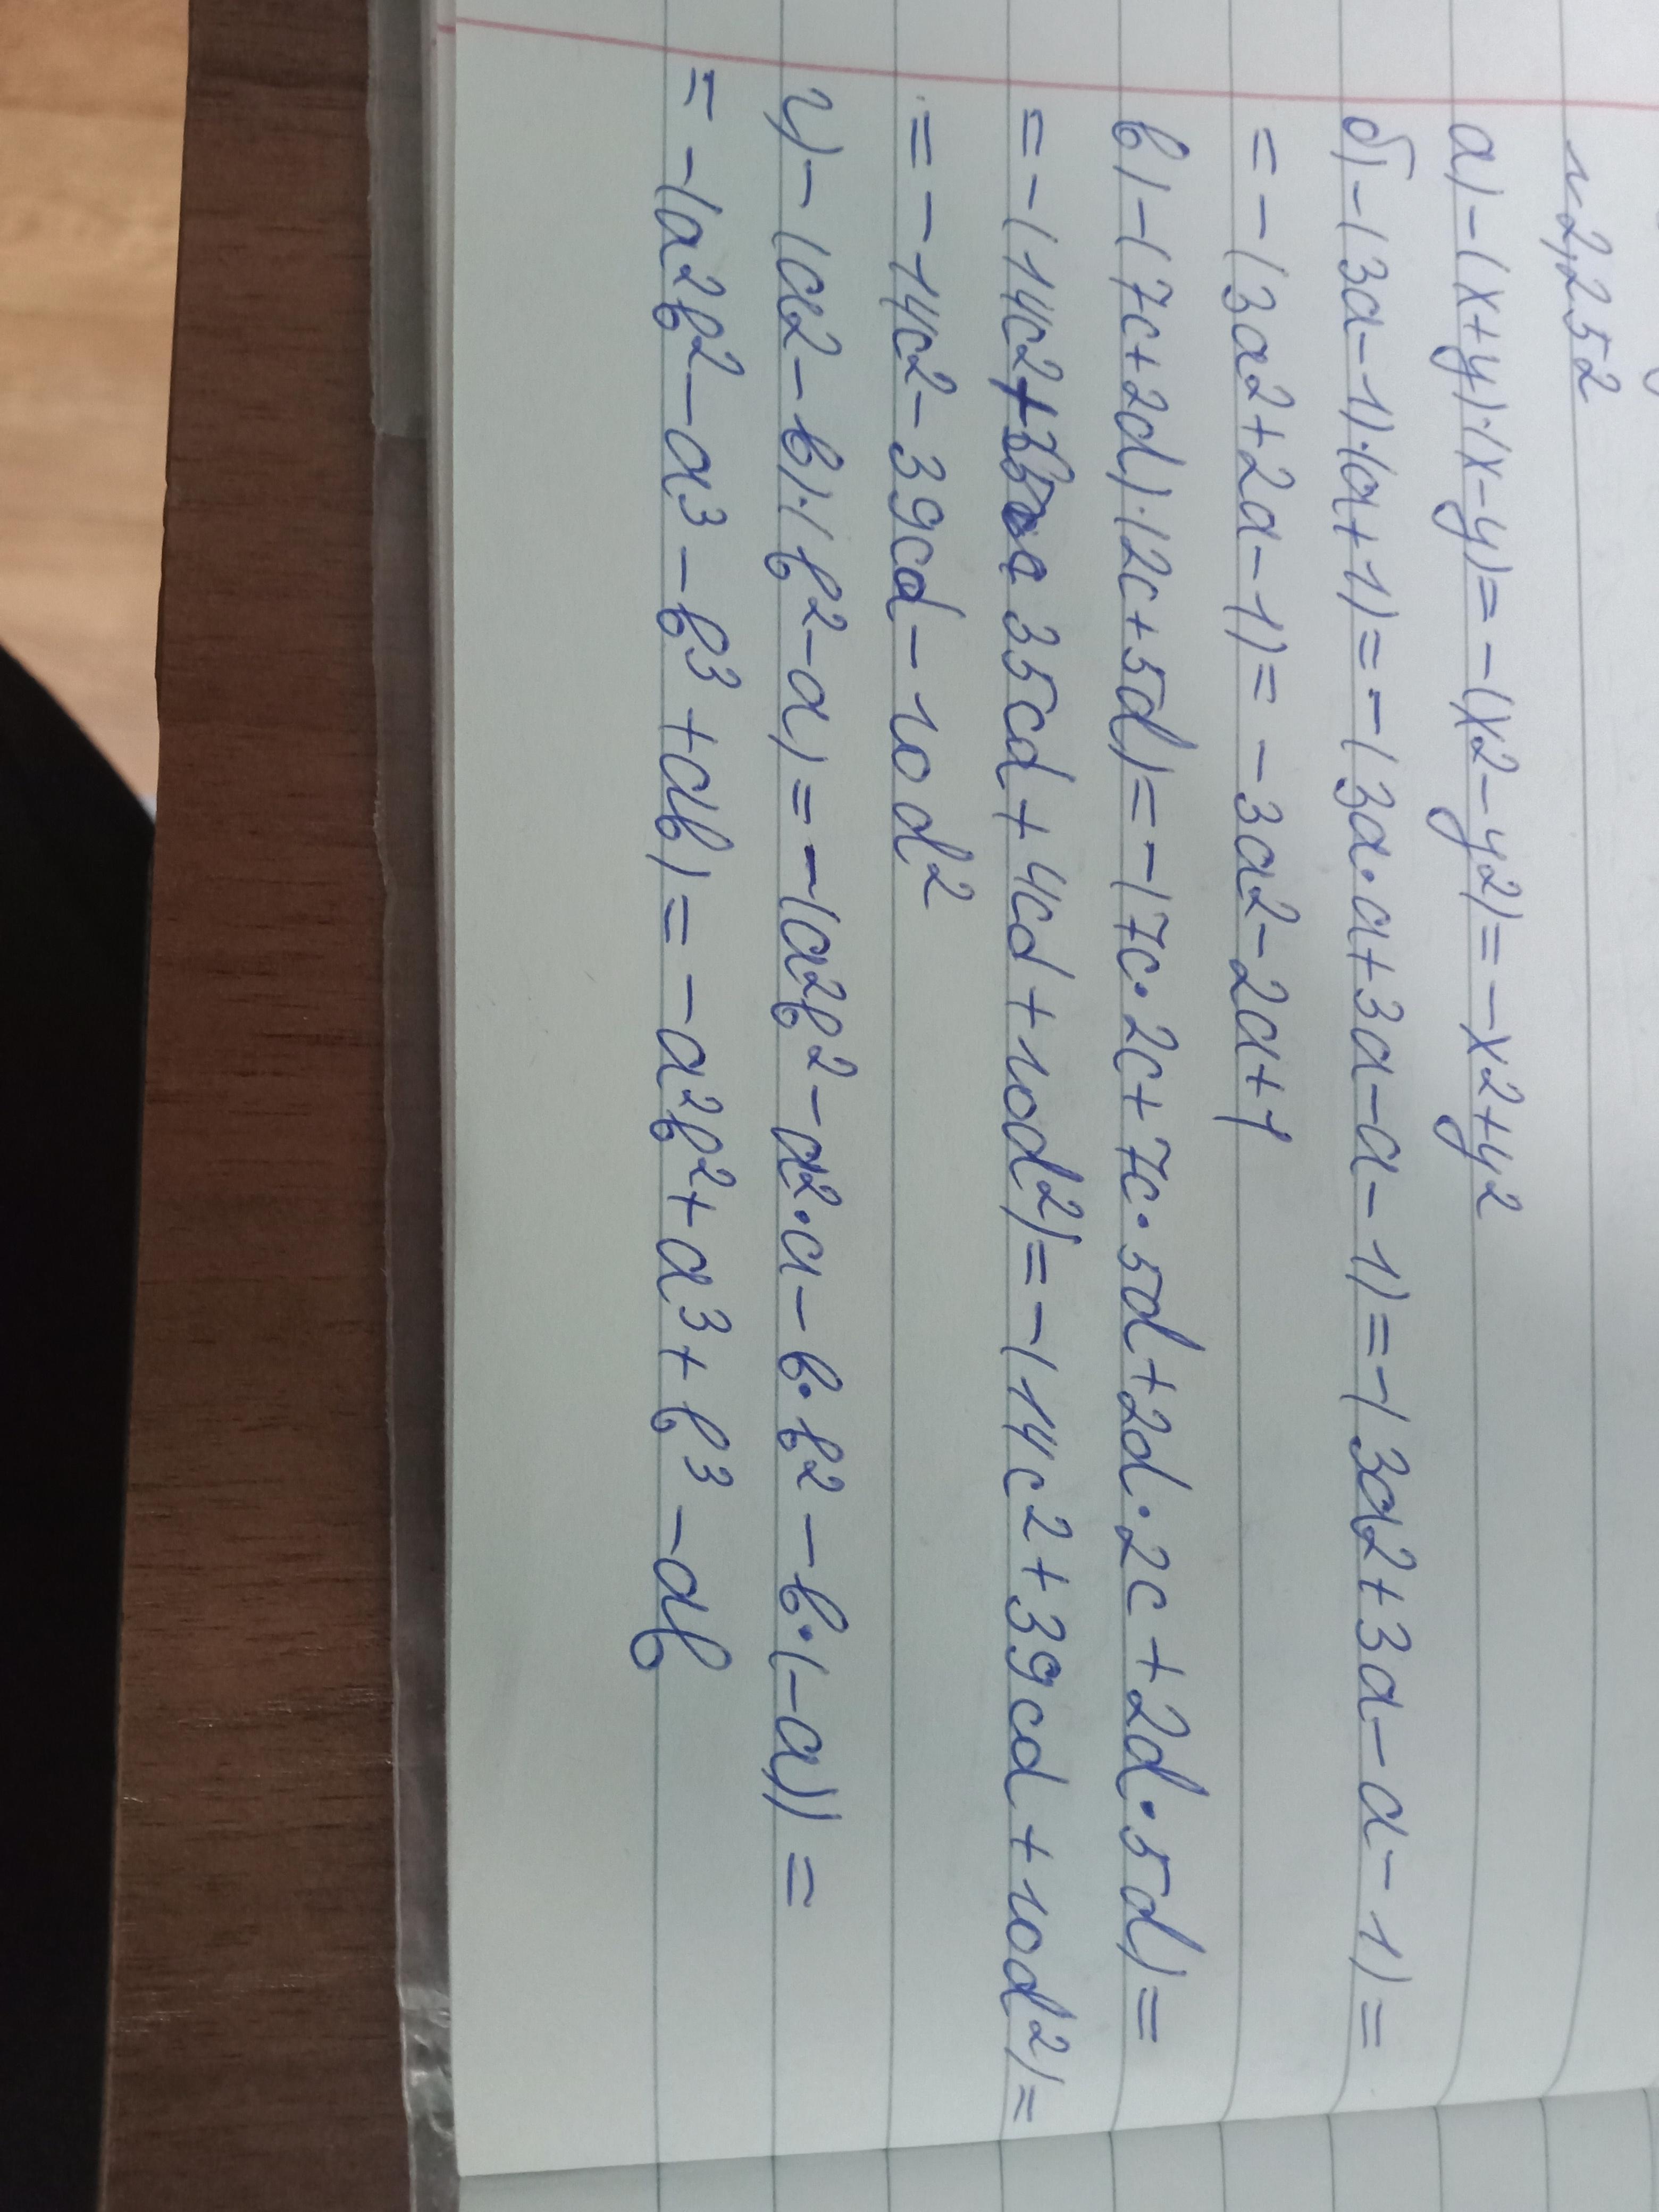 № 2,252
а) -(x+y)·(x-y)= -(x2-y2)= -x2+y2
б) -(3a-1)·(a+1)= -(3a·a+3a-a-1)= -(3a2+3a-a-1)=
= -(3a2+2a-1)= -3a2-2a+1
в) -(7c+2d)·(2c+5d)= -(7c·2c+7c·5d+2d·2c+2d·5d)=
= -(14c2+35cd+4cd+10d²)= -(14c2+39cd+10d²)=
= -14c2-39cd-10d²
г) -(a2-b)·(b2-a)= -(a2b2-a2·a-b·b2-b·(-a))=
= -(a2b2-a3-b3+ab)= -a2b2+a3+b3-ab